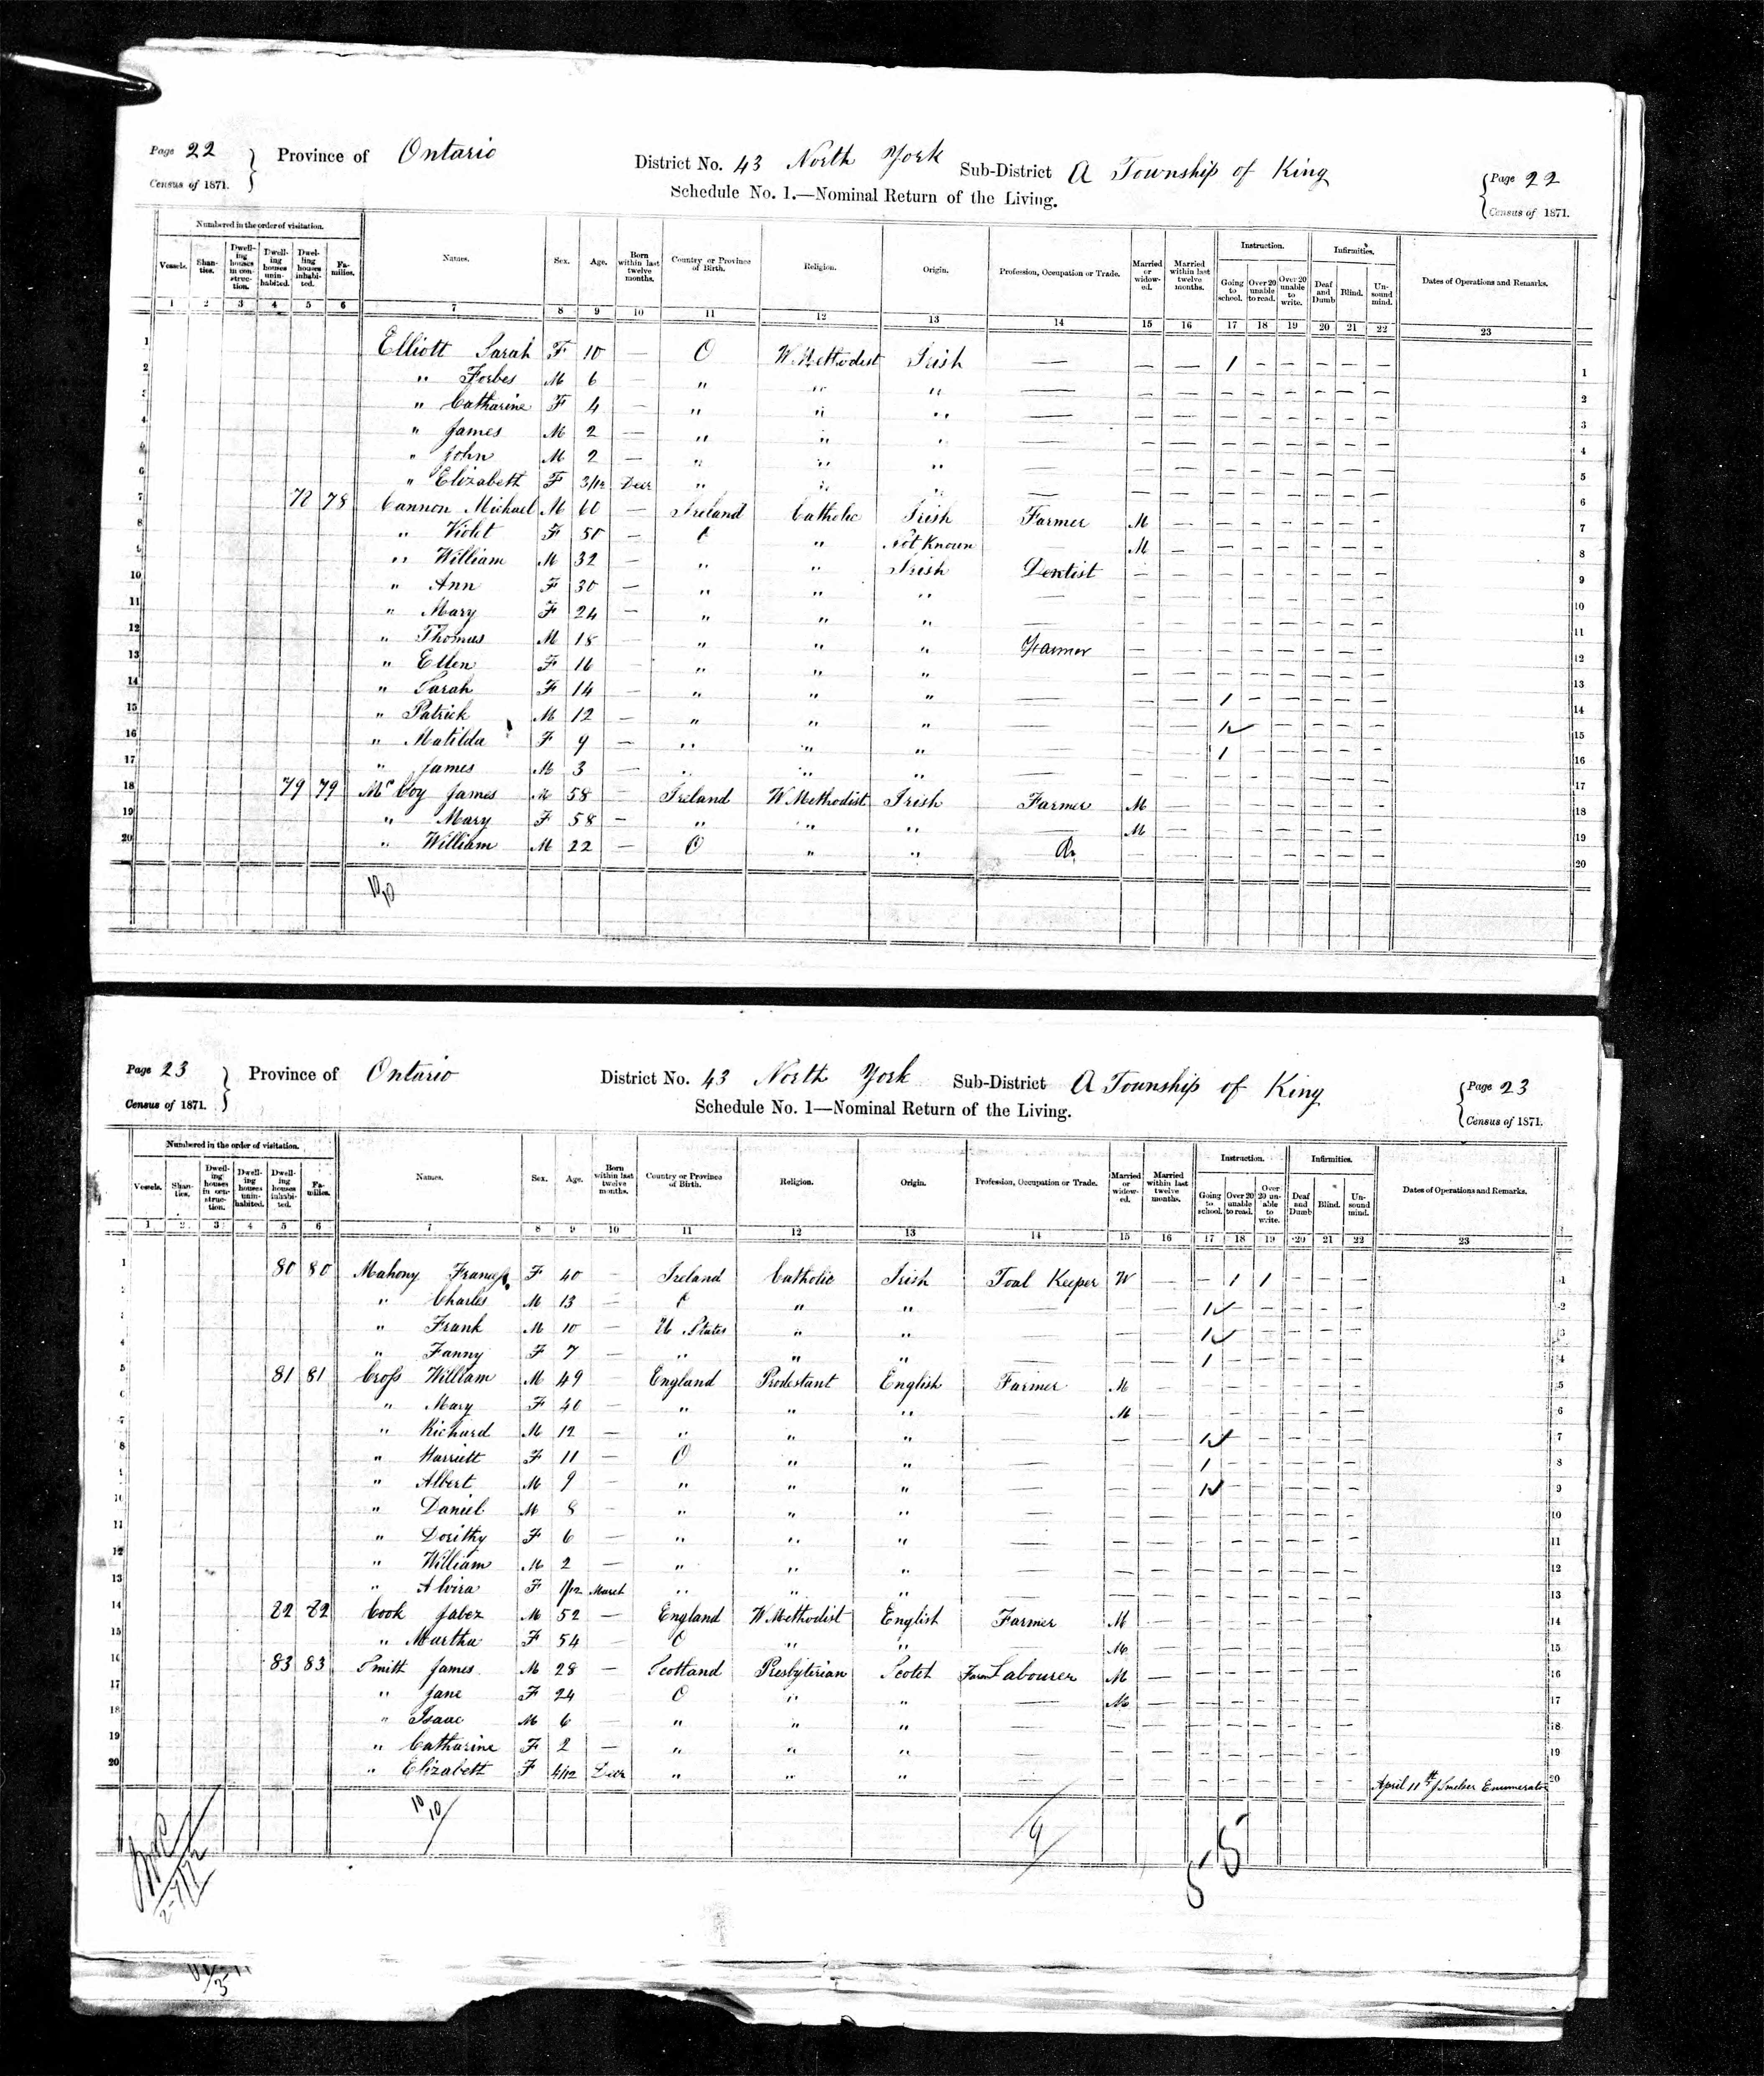 Page 22 } Province of Ontario District No. 43 North York Sub-District A Township of King { Page 22
Census of 1871. Schedule No. 1.—Nominal Return of the Living. Census of 1871.
Numbered in the order of visitation. Instruction. Infirmities.
Vessels. Shanties. Dwelling houses in construction. Dwelling houses uninhabited. Dwelling houses inhabited. Families. Names. Sex. Age. Born within last twelve months. Country or Province of Birth. Religion. Origin. Profession, Occupation or Trade. Married or widowed. Married within last twelve months. Going to school. Over 20 unable to read. Over 20 unable to write. Deaf and Dumb Blind. Unsound mind. Dates of Operations and Remarks.
1 2 3 4 5 6 7 8 9 10 11 12 13 14 15 16 17 18 19 20 21 22 23
1 Elliott Sarah F 10 — O W. Methodist Irish — — — 1 — — — — — 1
2 " Forbes M 6 — " " " — — — — — — — — — 2
3 " Catharine F 4 — " " " — — — — — — — — — 3
4 " James M 2 — " " " — — — — — — — — — 4
5 " John M 2 — " " " — — — — — — — — — 5
6 " Elizabeth F 3/12 Decr " " " — — — — — — — — — 6
7 78 78 Cannon Michael M 60 — Ireland Catholic Irish Farmer M — — — — — — — 7
8 " Violet F 50 — O " Not Known — M — — — — — — — 8
9 " William M 32 — " " Irish Dentist — — — — — — — — 9
10 " Ann F 30 — " " " — — — — — — — — — 10
11 " Mary F 24 — " " " — — — — — — — — — 11
12 " Thomas M 18 — " " " Farmer — — — — — — — — 12
13 " Ellen F 16 — " " " — — — — — — — — — 13
14 " Sarah F 14 — " " " — — — 1 — — — — — 14
15 " Patrick M 12 — " " " — — — 1 — — — — — 15
16 " Matilda F 9 — " " " — — — 1 — — — — — 16
17 " James M 3 — " " " — — — — — — — — — 17
18 79 79 McCoy James M 58 — Ireland W. Methodist Irish Farmer M — — — — — — — 18
19 " Mary F 58 — " " " — M — — — — — — — 19
20 " William M 22 — O " " — — — — — — — — 20
10/10
Page 23 } Province of Ontario District No. 43 North York Sub-District A Township of King { Page 23
Census of 1871. Schedule No. 1—Nominal Return of the Living. Census of 1871.
Numbered in the order of visitation. Instruction. Infirmities.
Vessels. Shanties. Dwelling houses in construction. Dwelling houses uninhabited. Dwelling houses inhabited. Families. Names. Sex. Age. Born within last twelve months. Country or Province of Birth. Religion. Origin. Profession, Occupation or Trade. Married or widowed. Married within last twelve months. Going to school. Over 20 unable to read. Over 20 unable to write. Deaf and Dumb Blind. Unsound mind. Dates of Operations and Remarks.
1 2 3 4 5 6 7 8 9 10 11 12 13 14 15 16 17 18 19 20 21 22 23
1 80 80 Mahony Francess F 40 — Ireland Catholic Irish Toal Keeper W — — 1 1 — — — 1
2 " Charles M 13 — O " " — — — 1 — — — — — 2
3 " Frank M 10 — U. States " " — — — 1 — — — — — 3
4 " Fanny F 7 — " " " — — — 1 — — — — — 4
5 81 81 Cross William M 49 — England Prodestant English Farmer M — — — — — — — 5
6 " Mary F 40 — " " " — M — — — — — — — 6
7 " Richard M 12 — " " " — — — 1 — — — — — 7
8 " Harriett F 11 — O " " — — — 1 — — — — — 8
9 " Albert M 9 — " " " — — — 1 — — — — — 9
10 " Daniel M 8 — " " " — — — — — — — — — 10
11 " Dorithy F 6 — " " " — — — — — — — — — 11
12 " William M 2 — " " " — — — — — — — — — 12
13 " Alvira F 1/12 March " " " — — — — — — — — — 13
14 82 82 Cook Jabez M 52 — England W. Methodist English Farmer M — — — — — — — 14
15 " Martha F 54 — O " " — M — — — — — — — 15
16 83 83 Smith James M 28 — Scotland Presbyterian Scotch Farm Labourer M — — — — — — — 16
17 " Jane F 24 — O " " — M — — — — — — — 17
18 " Isaac M 6 — " " " — — — — — — — — — 18
19 " Catharine F 2 — " " " — — — — — — — — — 19
20 " Elizabeth F 4/12 Decr " " " — — — — — — — — — April 11th J Smelser Enumerator 20
10/10 9 5 5